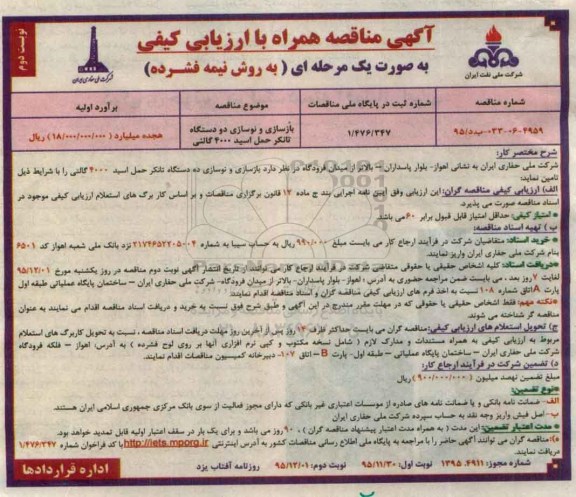 نوبت دوم
آگهی مناقصه همراه با ارزیابی کیفی
به صورت یک مرحله ای ( به روش نیمه فشرده )
شرکت ملی نفت ایران
شرکت ملی حفاری ایران
شماره مناقصه
شماره ثبت در پایگاه ملی مناقصات
موضوع مناقصه
برآورد اولیه
۱/۴۷۶/۳۴۷
بازسازی و نوسازی دو دستگاه تانکر حمل اسید ۴۰۰۰ گالنی
هجده میلیارد ( ۱۸/۰۰۰/۰۰۰/۰۰۰ ) ریال
شرح مختصر کار:
شرکت ملی حفاری ایران به نشانی اهواز- بلوار پاسداران – بالاتر از میدان فرودگاه در نظر دارد بازسازی و نوسازی ده دستگاه تانکر حمل اسید ۴۰۰۰ گالنی را با شرایط ذیل
تامین نماید:
الف) ارزیابی کیفی مناقصه گران: این ارزیابی وفق آیین نامه اجرایی بند ج ماده ۱۲ قانون برگزاری مناقصات و بر اساس کار برگ های استعلام ارزیابی کیفی موجود در
اسناد مناقصه صورت می پذیرد.
* امتیاز کیفی: حداقل امتیاز قابل قبول برابر ۶۰ می باشد.
ب ) تهیه اسناد مناقصه:
* خرید اسناد: متقاضیان شرکت در فرآیند ارجاع کار می بایست مبلغ ۹۹۰/۰۰۰ ریال به حساب سیبا به شماره ۲۱۷۴۶۵۲۲۰۵۰۰۴ نزد بانک ملی شعبه اهواز کد ۶۵۰۱
بنام شرکت ملی حفاری ایران واریز نمایند.
*دریافت اسناد: کلیه اشخاص حقیقی یا حقوقی متقاضی شرکت در فرآیند ارجاع کار می توانند از تاریخ انتشار آگهی نوبت دوم مناقصه در روز یکشنبه مورخ ۹۵/۱۲/۰۱
لغایت ۷ روز بعد ، می بایست ضمن مراجعه حضوری به آدرس : اهواز- بلوار پاسداران- بالاتر از میدان فرودگاه- شرکت ملی حفاری ایران – ساختمان پایگاه عملیاتی طبقه اول
پارت A اتاق شماره ۱۰۸ نسبت به اخذ فرم های ارزیابی کیفی مناقصه گران و اسناد مناقصه اقدام نمایند
*نکته مهم: فقط اشخاص حقیقی یا حقوقی که در مهلت مقرر مندرج در این آگهی و طبق شرح فوق نسبت به خرید و دریافت اسناد مناقصه اقدام می نمایند به عنوان
مناقصه گر شناخته می شوند.
ج) تحویل استعلام های ارزیابی کیفی: مناقصه گران می بایست حداکثر ظرف ۱۴ روز پس از آخرین روز مهلت دریافت اسناد مناقصه ، نسبت به تحویل کاربرگ های استعلام
مربوط به ارزیابی کیفی به همراه مستندات و مدارک لازم ( شامل نسخه مکتوب و کپی نرم افزاری آنها بر روی لوح فشرده ) به آدرس، اهواز – فلکه فرودگاه
شرکت ملی حفاری ایران – ساختمان پایگاه عملیاتی – طبقه اول- پارت B – اتاق ۱۰۷- دبیرخانه کمیسیون مناقصات اقدام نمایند.
د) تضمین شرکت در فرآیند ارجاع کار:
مبلغ تضمین نهصد میلیون ( ۹۰۰/۰۰۰/۰۰۰ ) ریال
*نوع تضمین:
الف- ضمانت نامه بانکی و یا ضمانت نامه های صادره از موسسات اعتباری غیر بانکی که دارای مجوز فعالیت از سوی بانک مرکزی جمهوری اسلامی ایران هستند.
ب- اصل فیش واریز وجه نقد به حساب سپرده شرکت ملی حفاری ایران
* مدت اعتبار تضمین: این مدت ( به همراه مدت اعتبار پیشنهاد مناقصه گران ) ، ۹۰ روز می باشد و برای یک بار در سقف اعتبار اولیه قابل تمدید خواهد بود.
ه): مناقصه گران می توانند آگهی حاضر را با مراجعه به پایگاه ملی اطلاع رسانی مناقصات کشور به آدرس اینترنتی http://iets.mporg.ir با کد فراخوان شماره ۱/۴۷۶/۳۴۷
دریافت نمایند.
شماره مجوز: ۴۹۱۱. ۱۳۹۵ نوبت اول: ۹۵/۱۱/۳۰ نوبت دوم: ۹۵/۱۲/۰۱ روزنامه آفتاب یزد
اداره قراردادها